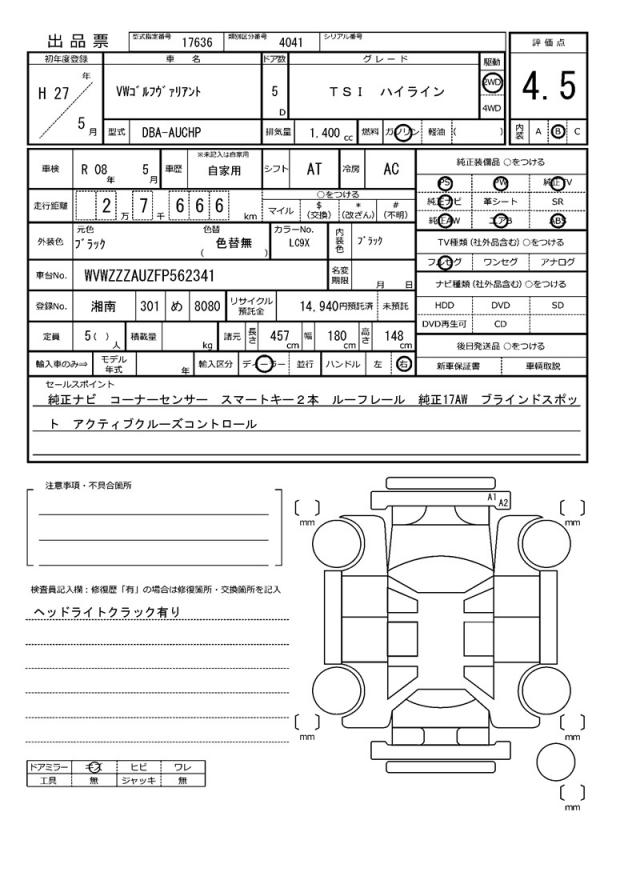 出品票 型式指定番号 17636 類別区分番号 4041 シリアル番号
評価点
4.5
内装 A B C
初年度登録 車名 ドア数 グレード 駆動
H 27 年 5 月
VWｺﾞﾙﾌｳﾞｧﾘｱﾝﾄ
5 D
TSI ハイライン
2WD
4WD
型式 DBA-AUCHP 排気量 1,400 cc 燃料 ガソリン 軽油 ( )
車検 R 08 年 5 月 車歴 ※未記入は自家用 自家用 シフト AT 冷房 AC
走行距離 2 万 7 千 6 6 6 km
○をつける
マイル $ (交換) * (改ざん) # (不明)
外装色 元色 ﾌﾞﾗｯｸ 色替 色替無 ( ) カラーNo. LC9X 内装色 ﾌﾞﾗｯｸ
車台No. WVWZZZAUZFP562341 名変期限 月 日
登録No. 湘南 301 め 8080 リサイクル預託金 14,940円預託済 未預託
定員 5 ( ) 人 積載量 kg 諸元 長さ 457 cm 幅 180 cm 高さ 148 cm
輸入車のみ⇒ モデル年式 年 輸入区分 ディーラー 並行 ハンドル 左 右
純正装備品 ○をつける
PS PW 純正TV
純正ナビ 革シート SR
純正AW エアB ABS
TV種類 (社外品含む) ○をつける
フルセグ ワンセグ アナログ
ナビ種類 (社外品含む) ○をつける
HDD DVD SD
DVD再生可 CD
後日発送品 ○をつける
新車保証書 車輌取説
セールスポイント
純正ナビ コーナーセンサー スマートキー2本 ルーフレール 純正17AW ブラインドスポッ
ト アクティブクルーズコントロール
注意事項・不具合箇所
検査員記入欄：修復歴「有」の場合は修復箇所・交換箇所を記入
ヘッドライトクラック有り
ドアミラー キズ ヒビ ワレ
工具 無 ジャッキ 無
A1
A2
mm
mm
mm
mm
mm